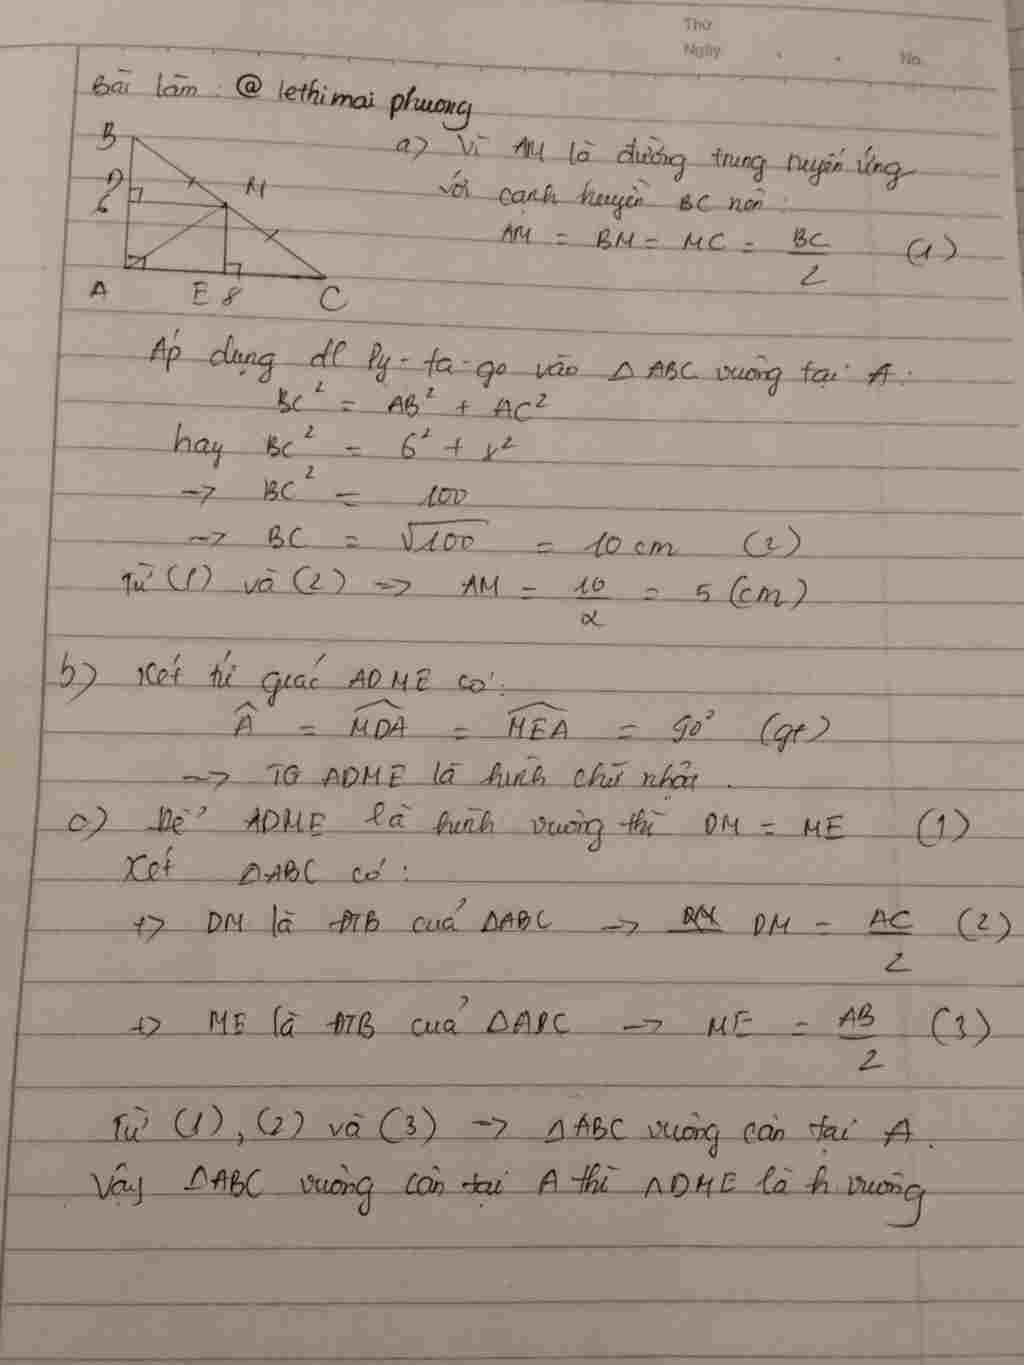 Thứ
Ngày
No.
Bài làm : @ lethimai phương
B
D
6
M
A
E 8
C
a) Vì AM là đường trung tuyến ứng
với cạnh huyền BC nên :
AM = BM = MC = BC/2 (1)
Áp dụng đl Py-ta-go vào △ABC vuông tại A :
BC² = AB² + AC²
hay BC² = 6² + 8²
→ BC² = 100
→ BC = √100 = 10 cm (2)
Từ (1) và (2) → AM = 10/2 = 5 (cm)
b) Xét tứ giác ADME có :
Â = M̂DA = M̂EA = 90° (gt)
→ TG ADME là hình chữ nhật .
c) Để ADME là hình vuông thì DM = ME (1)
Xét △ABC có :
+> DM là ĐTB cuả △ABC → DM = AC/2 (2)
+> ME là ĐTB cuả △ABC → ME = AB/2 (3)
Từ (1), (2) và (3) → △ABC vuông cân tại A .
Vậy △ABC vuông cân tại A thì ADME là h vuông